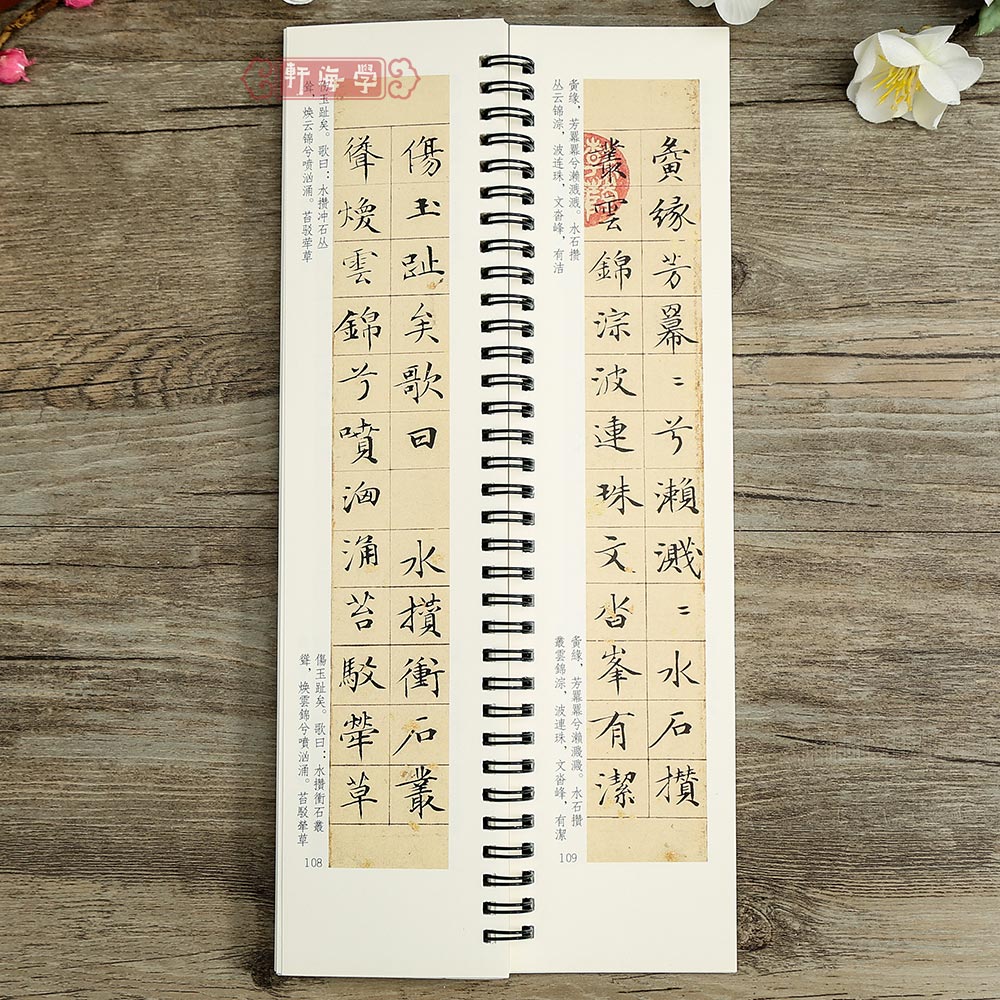 軒海學
傷玉趾矣歌曰 水攢衝石叢
聳煥雲錦兮噴洶涌苔駮犖草
伤玉趾矣。歌曰：水攒冲石丛
耸，焕云锦兮喷汹涌。苔驳荦草
傷玉趾矣。歌曰：水攢衝石叢
聳，煥雲錦兮噴洶涌。苔駁犖草
108
夤緣芳羃〻兮瀨濺〻水石攢
叢雲錦淙波連珠文沓峯有潔
夤缘，芳羃羃兮濑溅溅。水石攒
丛云锦淙，波连珠，文沓峰，有洁
夤緣，芳羃羃兮瀨濺濺。水石攢
叢雲錦淙，波連珠，文沓峰，有潔
109